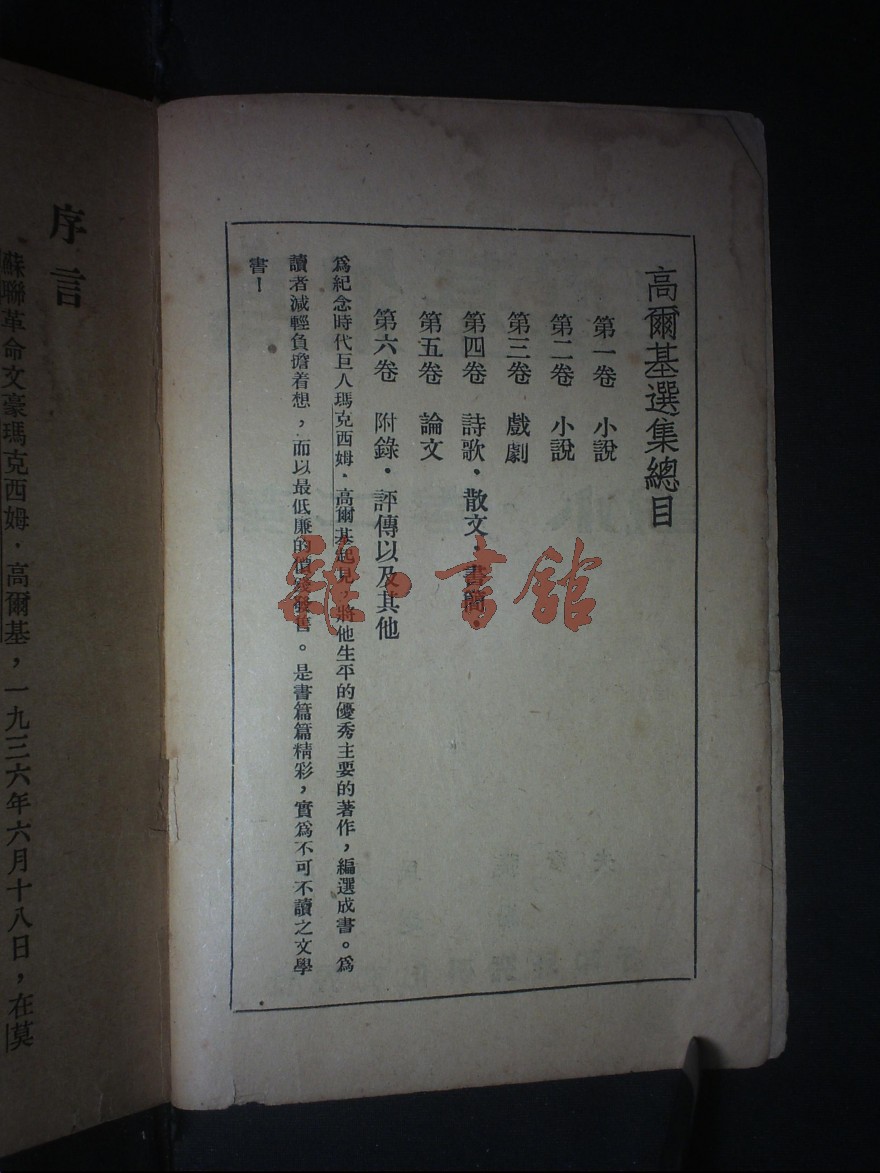 高爾基選集總目
第一卷 小說
第二卷 小說
第三卷 戲劇
第四卷 詩歌・散文・書簡・
第五卷 論文
第六卷 附錄・評傳以及其他
爲紀念時代巨人瑪克西姆・高爾基起見，將他生平的優秀主要的著作，編選成書。爲
讀者減輕負擔着想，而以最低廉的價發售。是書篇篇精彩，實爲不可不讀之文學
書！
序言
蘇聯革命文豪瑪克西姆・高爾基，一九三六年六月十八日，在莫
雜・書館